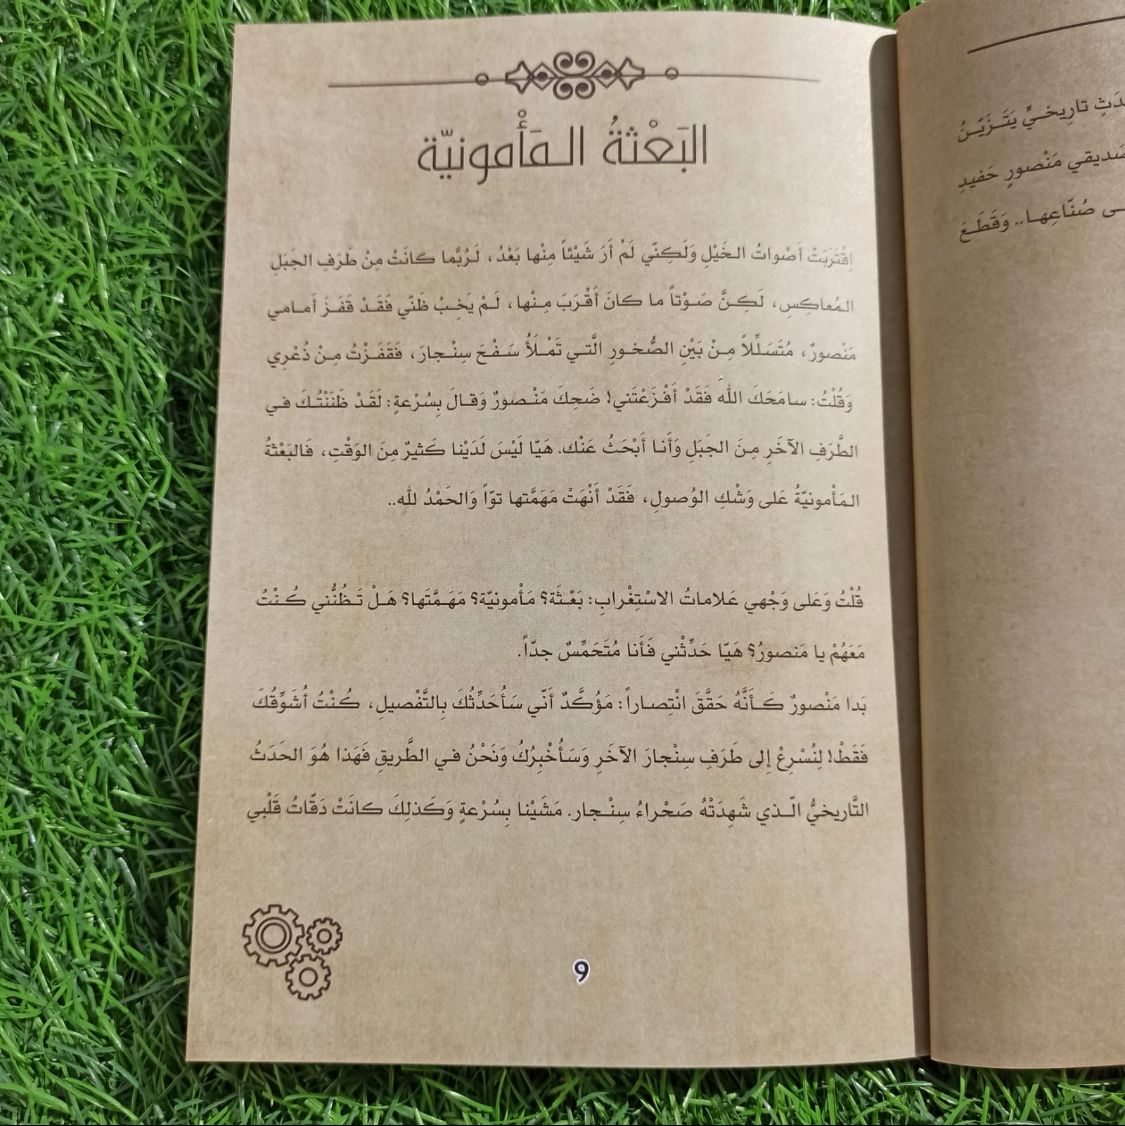 البَعْثةُ المَأْمونيّة
اِقْتَرَبَتْ أَصْواتُ الخَيْلِ وَلَكِنّي لَمْ أَرَ شَيْئاً مِنْها بَعْدُ، لَرُبَّما كانَتْ مِنْ طَرَفِ الجَبَلِ
المُعاكِسِ، لَكِنَّ صَوْتاً ما كانَ أَقْرَبَ مِنْها، لَمْ يَخِبْ ظَنّي فَقَدْ قَفَزَ أَمامي
مَنْصورٌ، مُتَسَلِّلاً مِنْ بَيْنِ الصُّخورِ الَّتي تَمْلَأُ سَفْحَ سِنْجارَ، فَقَفَزْتُ مِنْ ذُعْرِي
وَقُلْتُ: سامَحَكَ اللهُ فَقَدْ أَفْزَعْتَني! ضَحِكَ مَنْصورٌ وَقالَ بِسُرْعةٍ: لَقَدْ ظَنَنْتُكَ في
الطَّرَفِ الآخَرِ مِنَ الجَبَلِ وَأَنا أَبْحَثُ عَنْك. هَيّا لَيْسَ لَدَيْنا كَثيرٌ مِنَ الوَقْتِ، فَالبَعْثةُ
المَأْمونيّةُ عَلى وَشْكِ الوُصولِ، فَقَدْ أَنْهَتْ مَهَمَّتها توّاً وَالحَمْدُ لله..
قُلْتُ وَعَلى وَجْهي عَلاماتُ الاسْتِغْرابِ: بَعْثَة؟ مَأْمونيّة؟ مَهَمَّتَها؟ هَلْ تَظُنُّني كُنْتُ
مَعَهُمْ يا مَنصورُ؟ هَيّا حَدِّثْني فَأَنا مُتَحَمِّسٌ جدّاً.
بدا مَنْصورٌ كَأَنَّهُ حَقَّقَ انْتِصاراً: مَؤُكَّدٌ أَنّي سَأُحَدِّثُكَ بِالتَّفْصيلِ، كُنْتُ أُشَوِّقُكَ
فَقَطْ! لِنُسْرِعْ إلى طَرَفِ سِنْجارَ الآخَرِ وَسَأُخْبِرُكُ وَنَحْنُ في الطَّريقِ فَهَذا هُوَ الحَدَثُ
التَّاريخيُّ الّذي شَهِدَتْهُ صَحْراءُ سِنْجار. مَشَيْنا بِسُرْعةٍ وَكَذلِكَ كانَتْ دَقّاتُ قَلْبي
9
تاريخيٍّ يَتَزَيّنُ
صَديقي مَنْصورٍ حَفيدِ
صُنّاعِها.. وَقَطَعَ